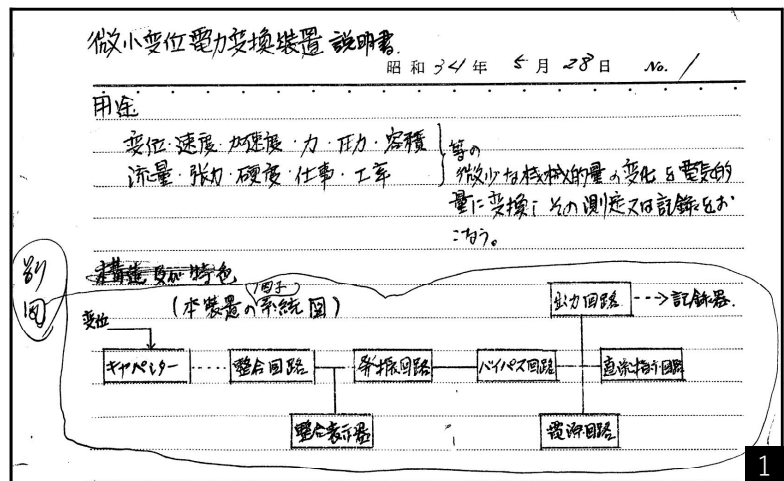 微小変位電力変換装置 説明書.
昭和34年 5月28日 No. 1
用途
変位・速度・加速度・力・圧力・容積
流量・張力・硬度・仕事・工率
等の
微少な機械的量の変化を電気的
量に変換し その測定又は記録をお
こなう。
別図
構造及び特色
(本装置の系統図)
因子
出力回路 ---> 記録器.
変位
キャパシター 整合回路 発振回路 バイパス回路 直流指示回路
整合表示器 電源回路
1